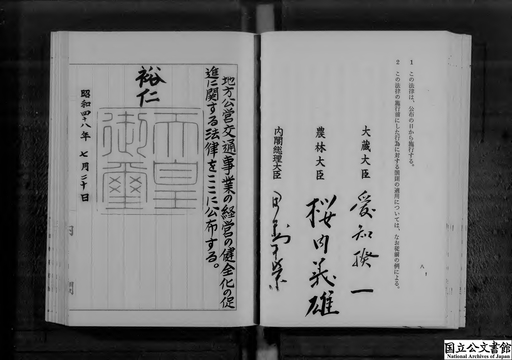 1 この法律は、公布の日から施行する。
2 この法律の施行前にした行為に対する罰則の適用については、なお従前の例による。
大蔵大臣 愛知揆一
農林大臣 桜内義雄
内閣総理大臣 田中角榮
地方公営交通事業の経営の健全化の促
進に関する法律をここに公布する。
裕仁
天皇
御璽
昭和四十八年 七月二十日
国立公文書館
National Archives of Japan